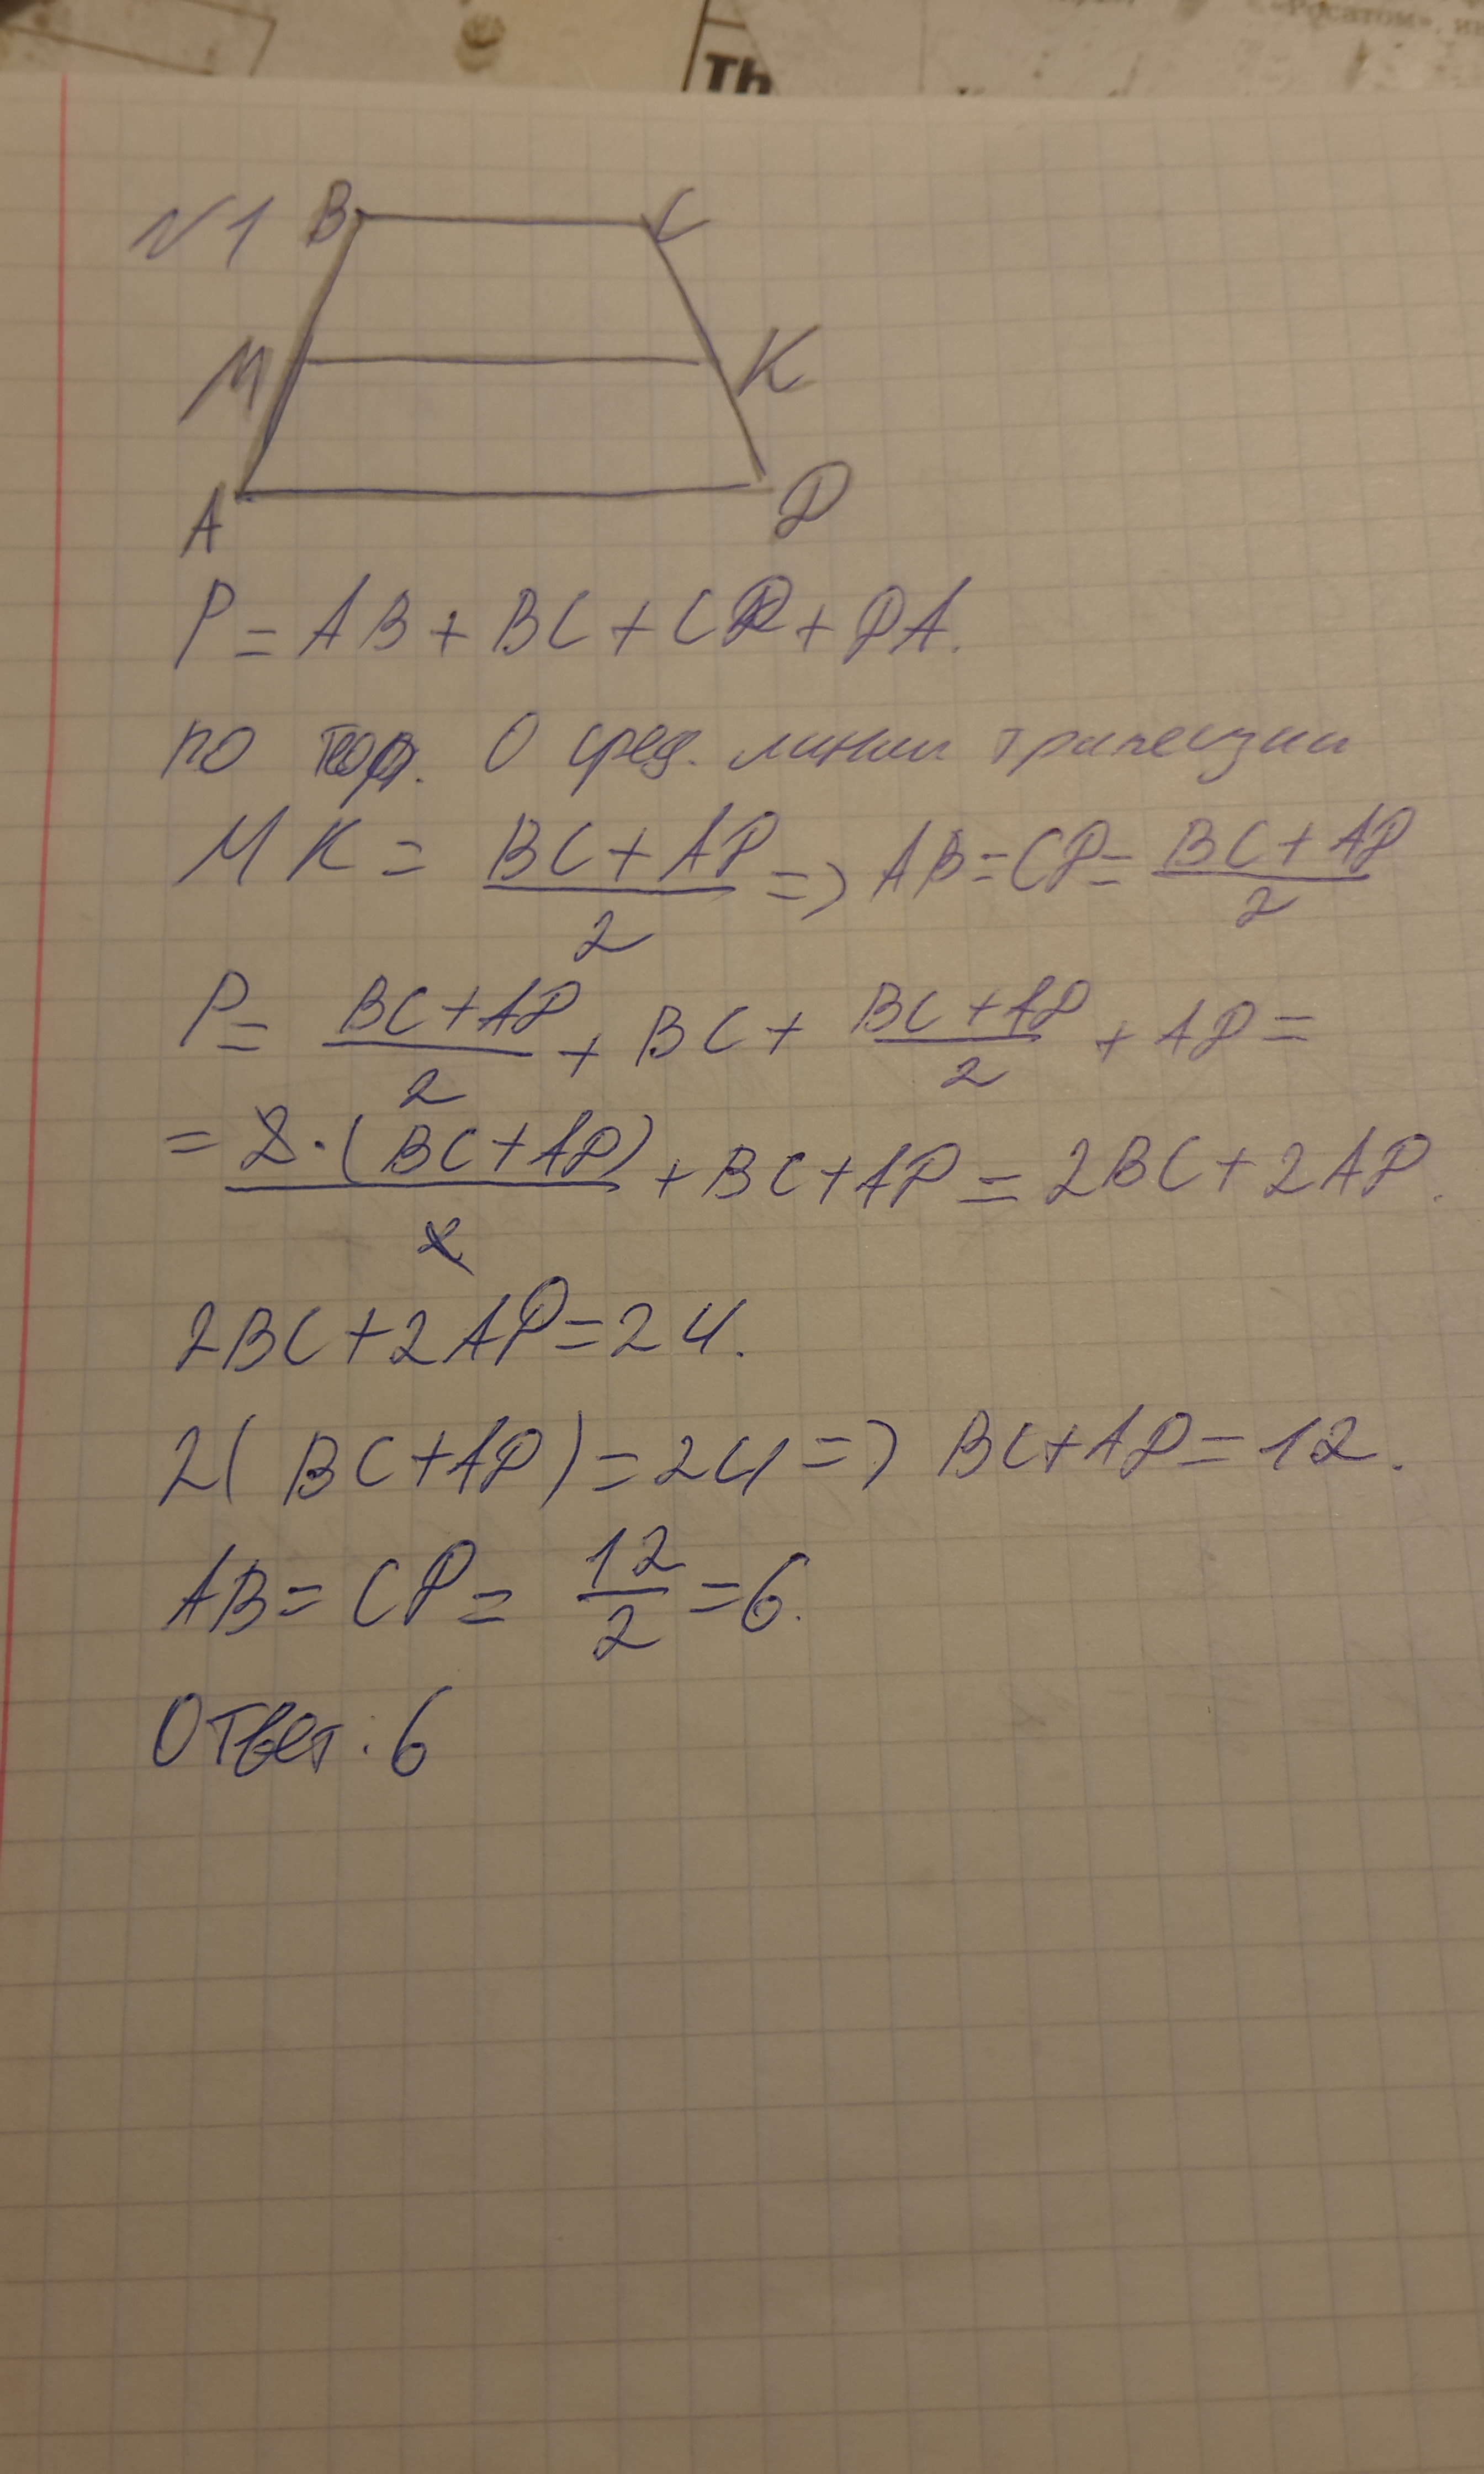 «Росатом», ин
Th
№1 B C
M K
A D
P = AB + BC + CD + DA.
по теор. О сред. линии трапеции
MK = \frac{BC + AD}{2} => AB = CD = \frac{BC + AD}{2}
P = \frac{BC + AD}{2} + BC + \frac{BC + AD}{2} + AD =
= \frac{2·(BC + AD)}{2} + BC + AD = 2BC + 2AD.
2BC + 2AD = 24.
2(BC + AD) = 24 => BC + AD = 12.
AB = CD = \frac{12}{2} = 6.
Ответ: 6